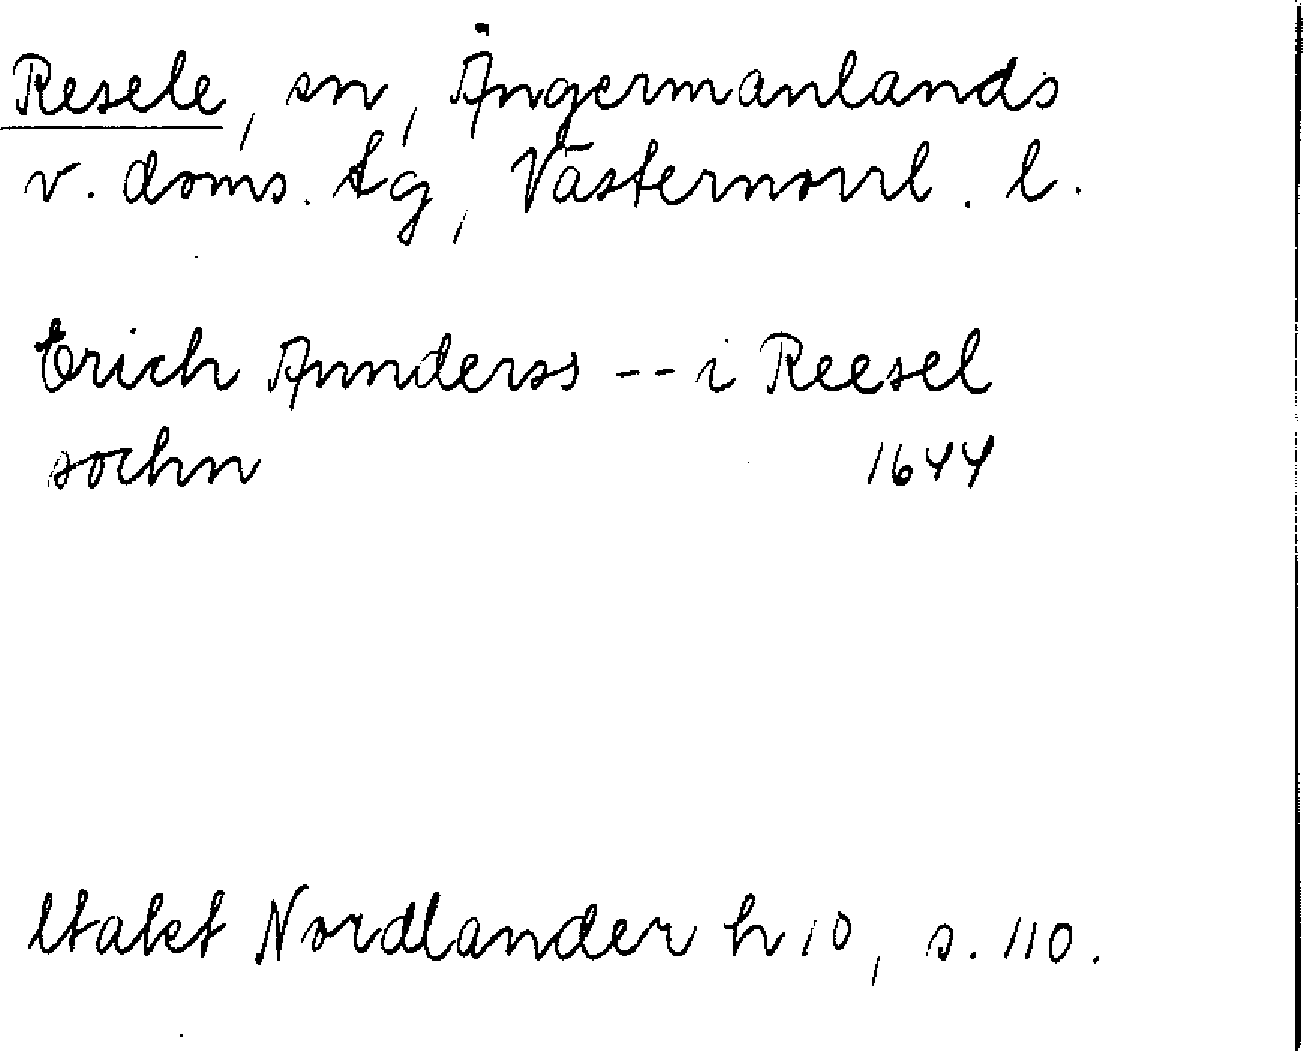 Resele, sn, Ångermanlands
v. doms. tg, Västernorrl. l.
Erich Annderss -- i Reesel
sochn 1644
ltakt Nordlander h 10, s. 110.